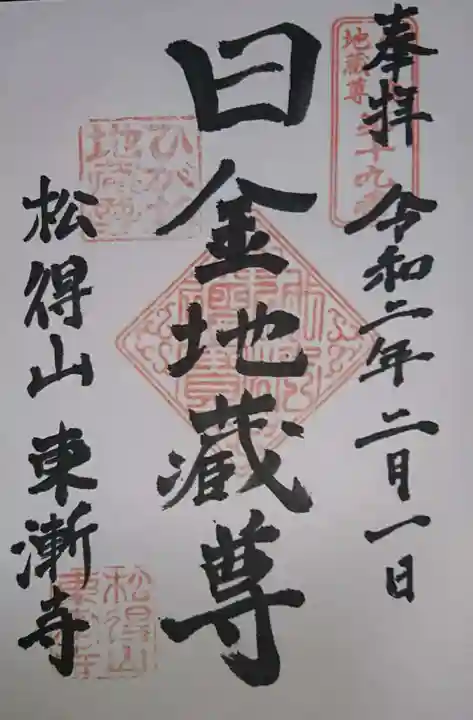 奉拝 令和二年二月一日
日金地蔵尊
松得山 東漸寺
地蔵尊
ひがね
地蔵尊
松得山
東漸寺